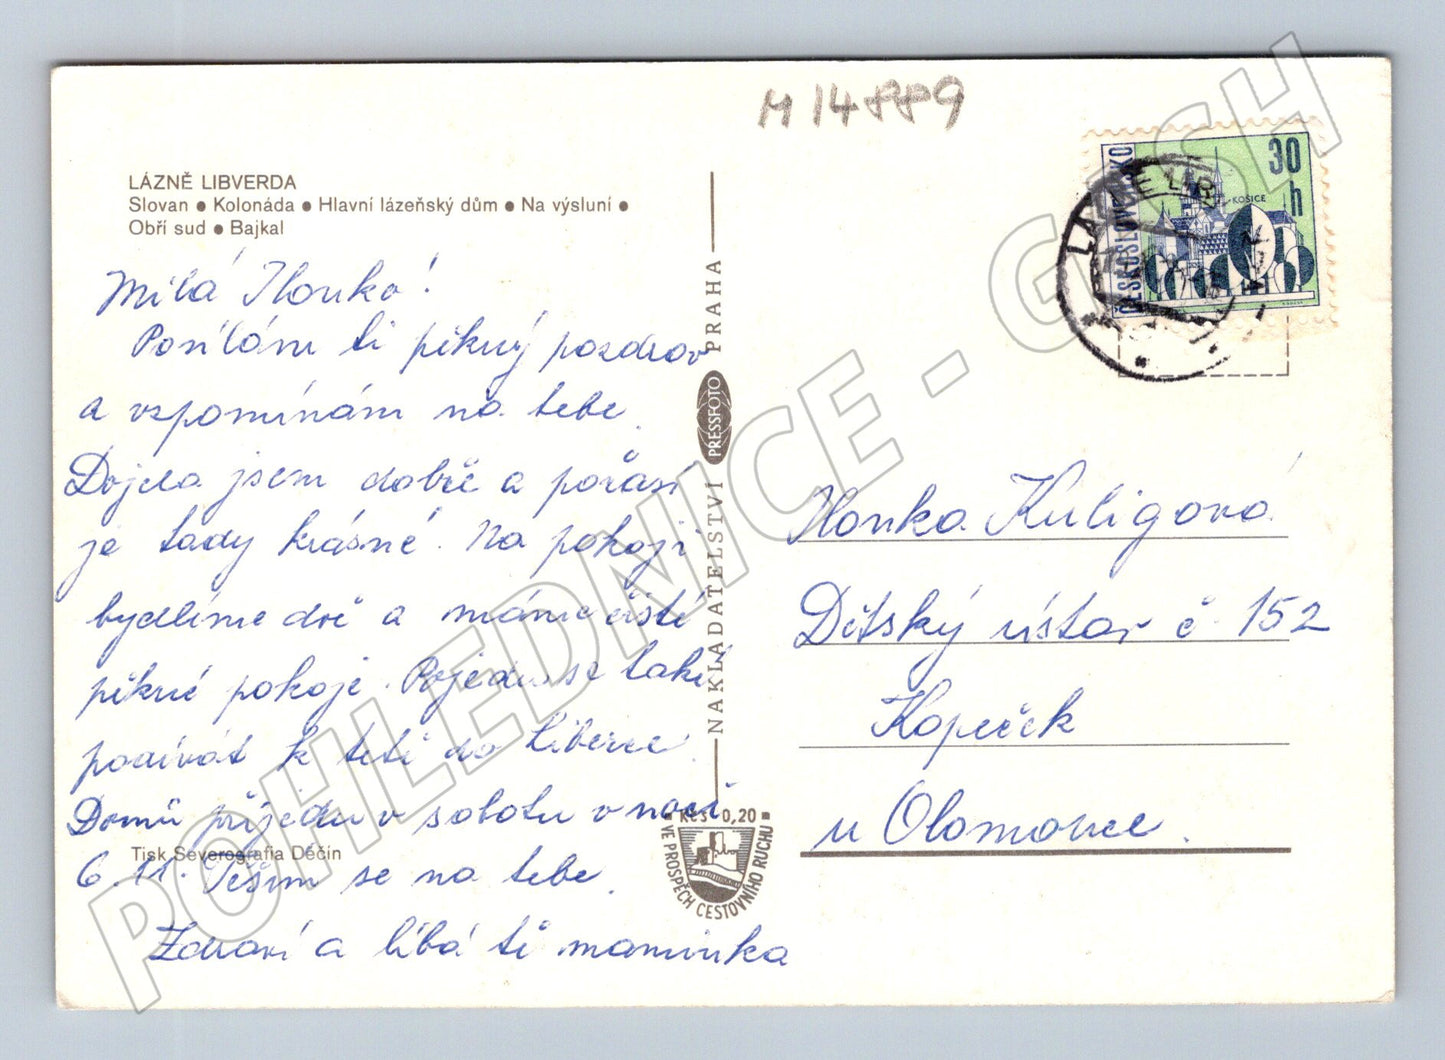 M 14889
LÁZNĚ LIBVERDA
Slovan ● Kolonáda ● Hlavní lázeňský dům ● Na výsluní ●
Obří sud ● Bajkal
Milá Ilonko!
Posílám ti pěkný pozdrav
a vzpomínám na tebe.
Dojela jsem dobře a počasí
je tady krásné. Na pokoji
bydlíme dvě a máme čistě
pěkné pokoje. Pojedu se také
podívat k tetě do Liberce.
Domů přijedu v sobotu v noci
6. 11. Těším se na tebe.
Zdraví a líbá tě maminka
Tisk Severografia Děčín
NAKLADATELSTVÍ PRESSFOTO PRAHA
Kčs 0,20
VE PROSPĚCH CESTOVNÍHO RUCHU
ČESKOSLOVENSKO
30 h
KOŠICE
LÁZNĚ LIB
Ilonka Kuligová
Dětský ústav č. 152
Kopeček
u Olomouce.
POHLEDNICE - GASH